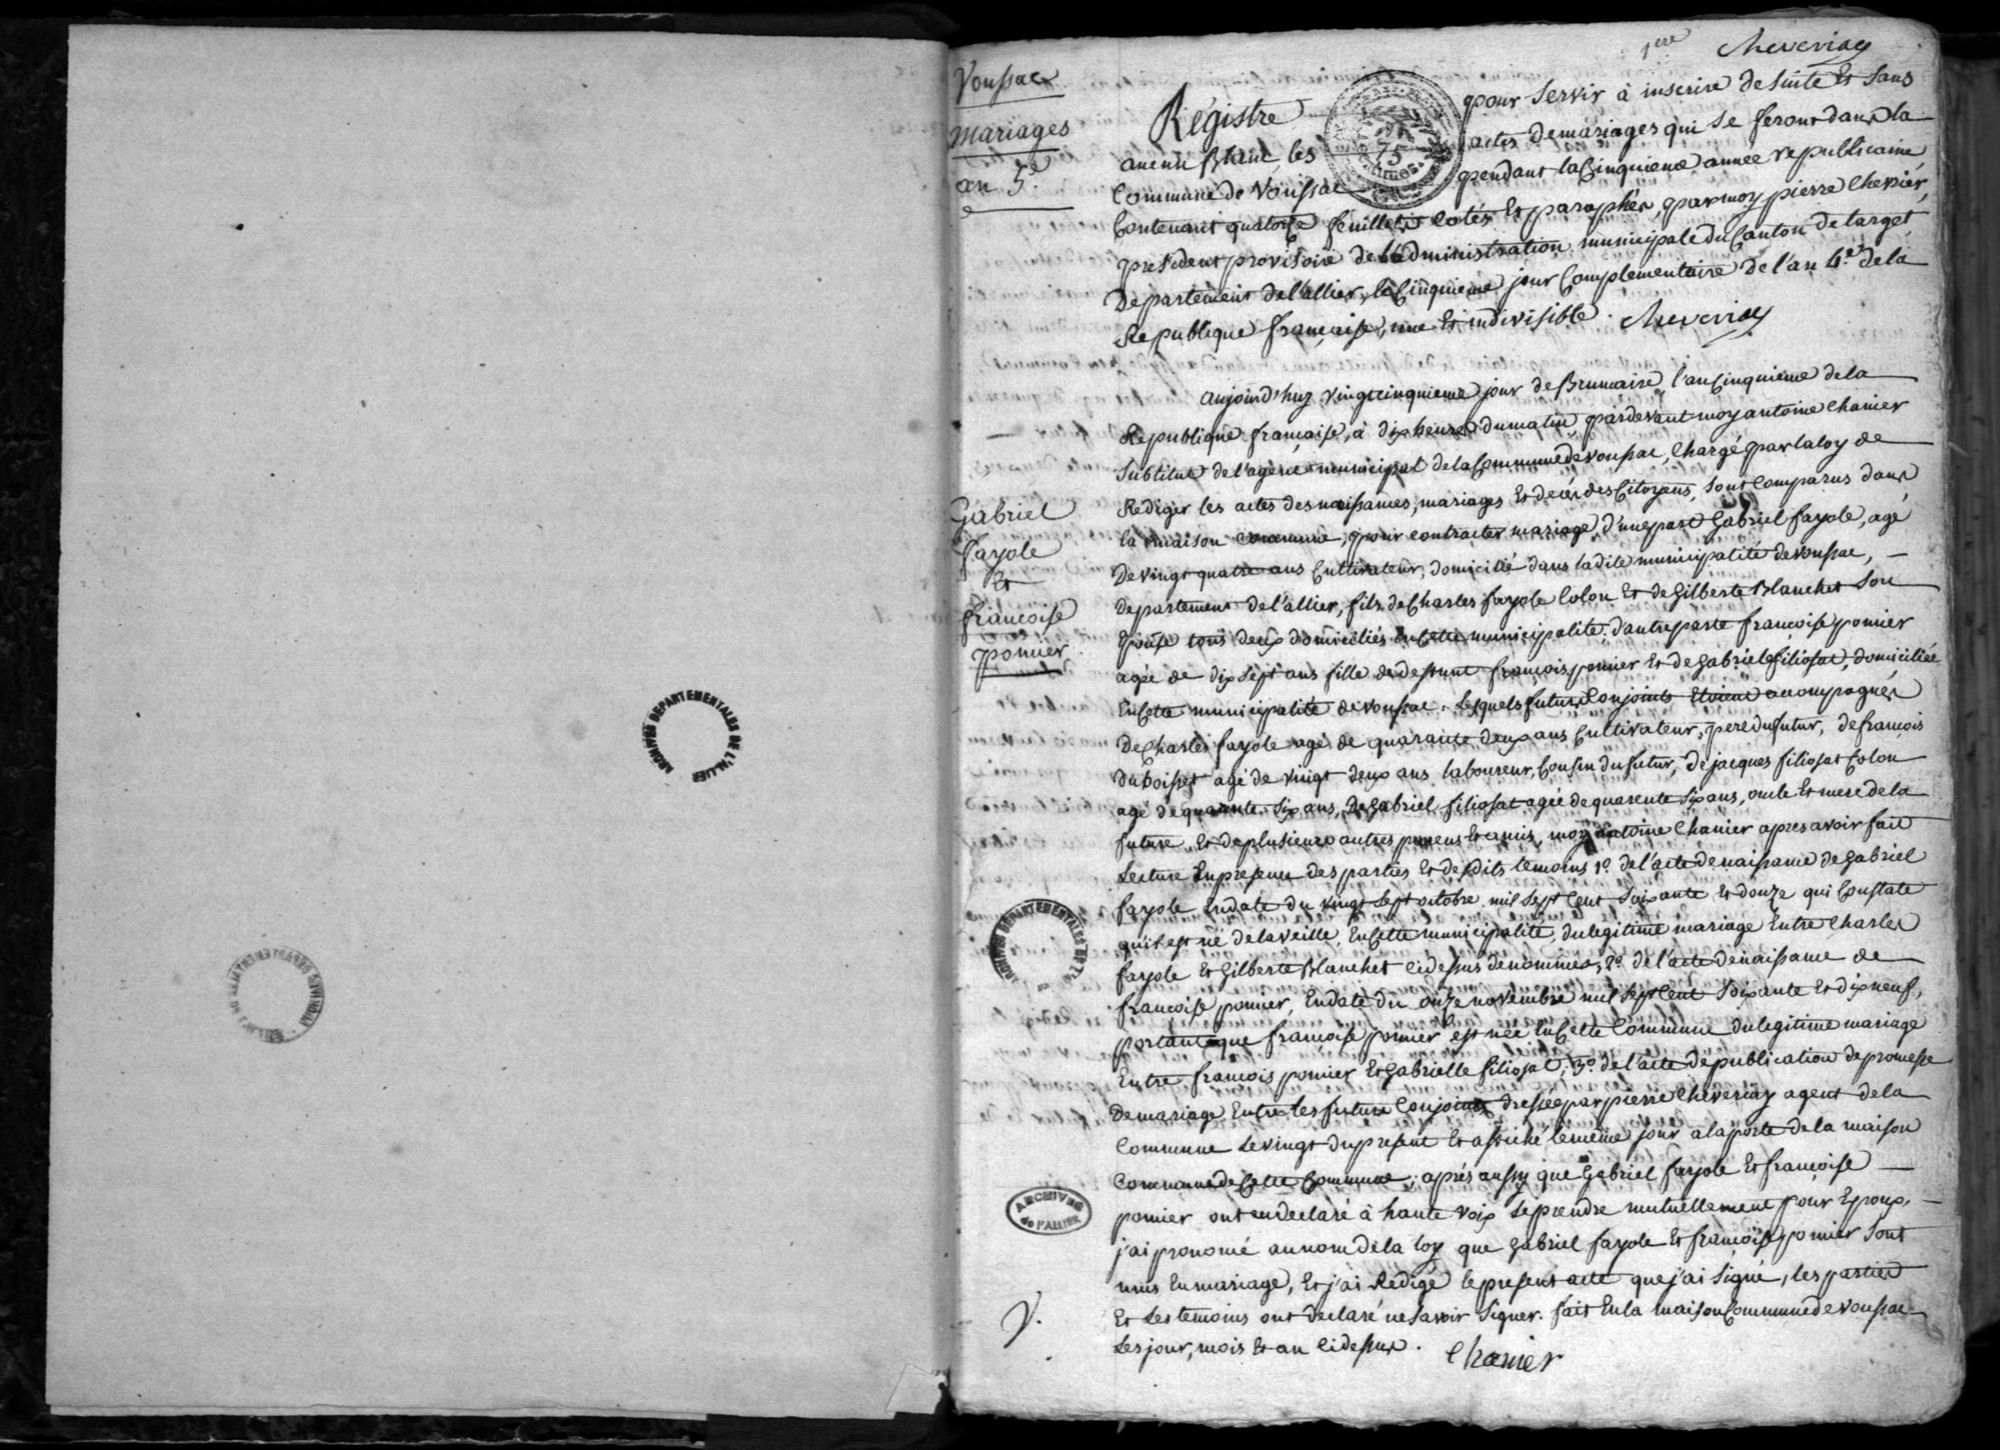 1ere
Cheveriay
Voussac
mariages
an 5e
Régistre pour servir à inscrire de suitte Et sans
aucun Blanc, les actes de mariages qui se feront dans la
Commune de Voussac pendant la Cinquieme année republicaine
Contenant quatorze feuillets cotés Et paraphés, par moy pierre Chevriér,
president provisoire de l'administration municipale du Canton de target,
Departement de l'allier, le Cinquieme jour Complementaire de l'an 4e de la
Republique française, une Et indivisible. Cheveriay
ARCHIVES DEPARTEMENTALES DE L'ALLIER
Gabriel
fayole
Et
françoise
ponier
aujourd'huy vingt cinquieme jour de Brumaire, l'an Cinquieme de la
Republique française, à dix heures du matin, pardevant moy antoine Chanier
subtitut de l'agent municipal de la Commune de voussac, Chargé par la loy de
Rediger les actes des naissances, mariages Et decés des Citoyens, sont Comparus dans
la maison commune, pour contracter mariage, d'une part Gabriel fayole, agé
de vingt quatre ans Cultivateur, domicilié dans ladite municipalité de voussac, —
departement de l'allier, fils de Charles fayole Colon Et de Gilberte Blanchet son
Epouse tous deux domiciliés en Cette municipalité, d'autre parte françoise ponier
agée de dix sept ans fille de defsunt françois ponier Et de Gabrielle filiosat, domiciliée
En Cette municipalité de voussac. Lesquels futurs Conjoints Etoient accompagnés
de Charles fayole agé de quarante deux ans Cultivateur, pere du futur, de francois
duboisset agé de vingt deux ans laboureur, Cousin du futur, de jacques filiosat Colon
agé de quarante six ans, de Gabriel filiosat agée de quarente six ans, oncle Et mere de la
future, Et de plusieurs autres parens Et amis, moy antoine Chanier apres avoir fait
Lecture En presence des parties Et desdits temoins 1º. de l'acte de naissance de Gabriel
fayole En date du vingt sept octobre mil sept Cent soixante Et douze qui Constate
qu'il est né de la veille, En Cette municipalité, du legitime mariage Entre Charles
fayole Et Gilberte Blanchet cidessus denommés, 2º. de l'acte de naissance de
françoise ponier, En date du onze novembre mil sept Cent soixante Et dix neuf,
portant que françoise ponier est née En Cette Commune du legitime mariage
Entre françois ponier Et Gabrielle filiosat, 3º. de l'acte de publication de promesse
de mariage Entre les futurs Conjoints dressée par pierre Cheveriay agent de la
Commune Le vingt du present Et affiché le même jour a la porte de la maison
Commune de Cette Commune, aprés aussy que Gabriel fayole Et françoise —
ponier ont en declaré à haute voix se prendre mutuellement pour Epoux, —
j'ai prononcé au nom de la loy que Gabriel fayole Et françoise ponier sont
unis En mariage, Et j'ai Redigé le present acte que j'ai signé, les parties
Et Les temoins ont declaré ne savoir signer. fait En la maison Commune de voussac
Les jour, mois Et an cidessus. Chanier
ARCHIVES DEPARTEMENTALES DE L'ALLIER
ARCHIVES
de l'ALLIER
V.